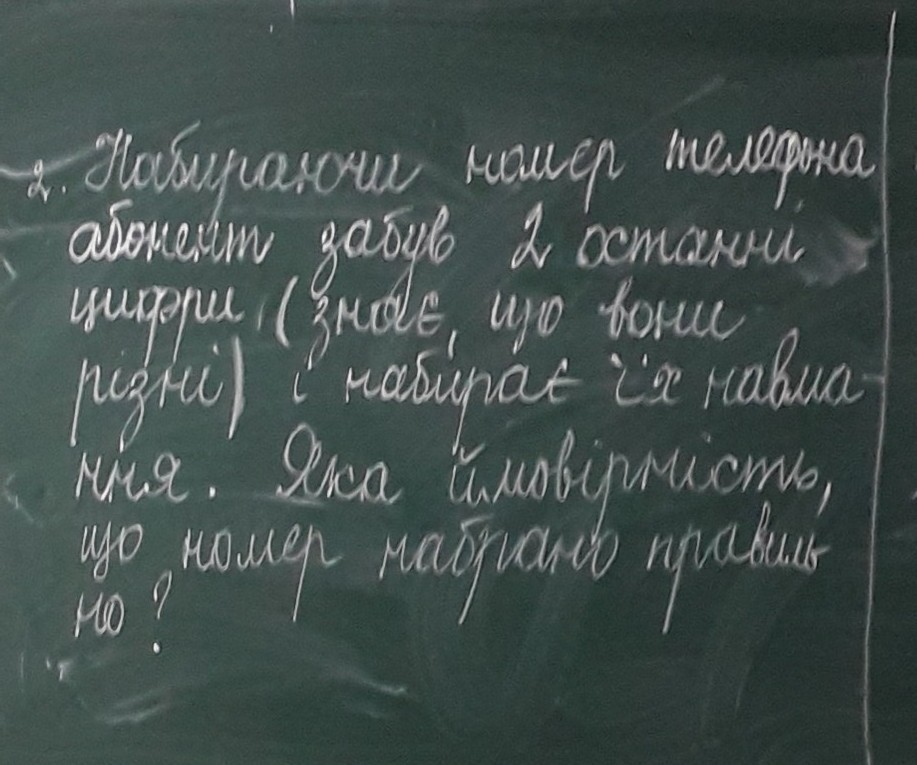 2. Набираючи номер телефона
абонент забув 2 останні
цифри (знає, що вони
різні) і набирає їх навма-
ння. Яка ймовірність,
що номер набрано правиль
но?